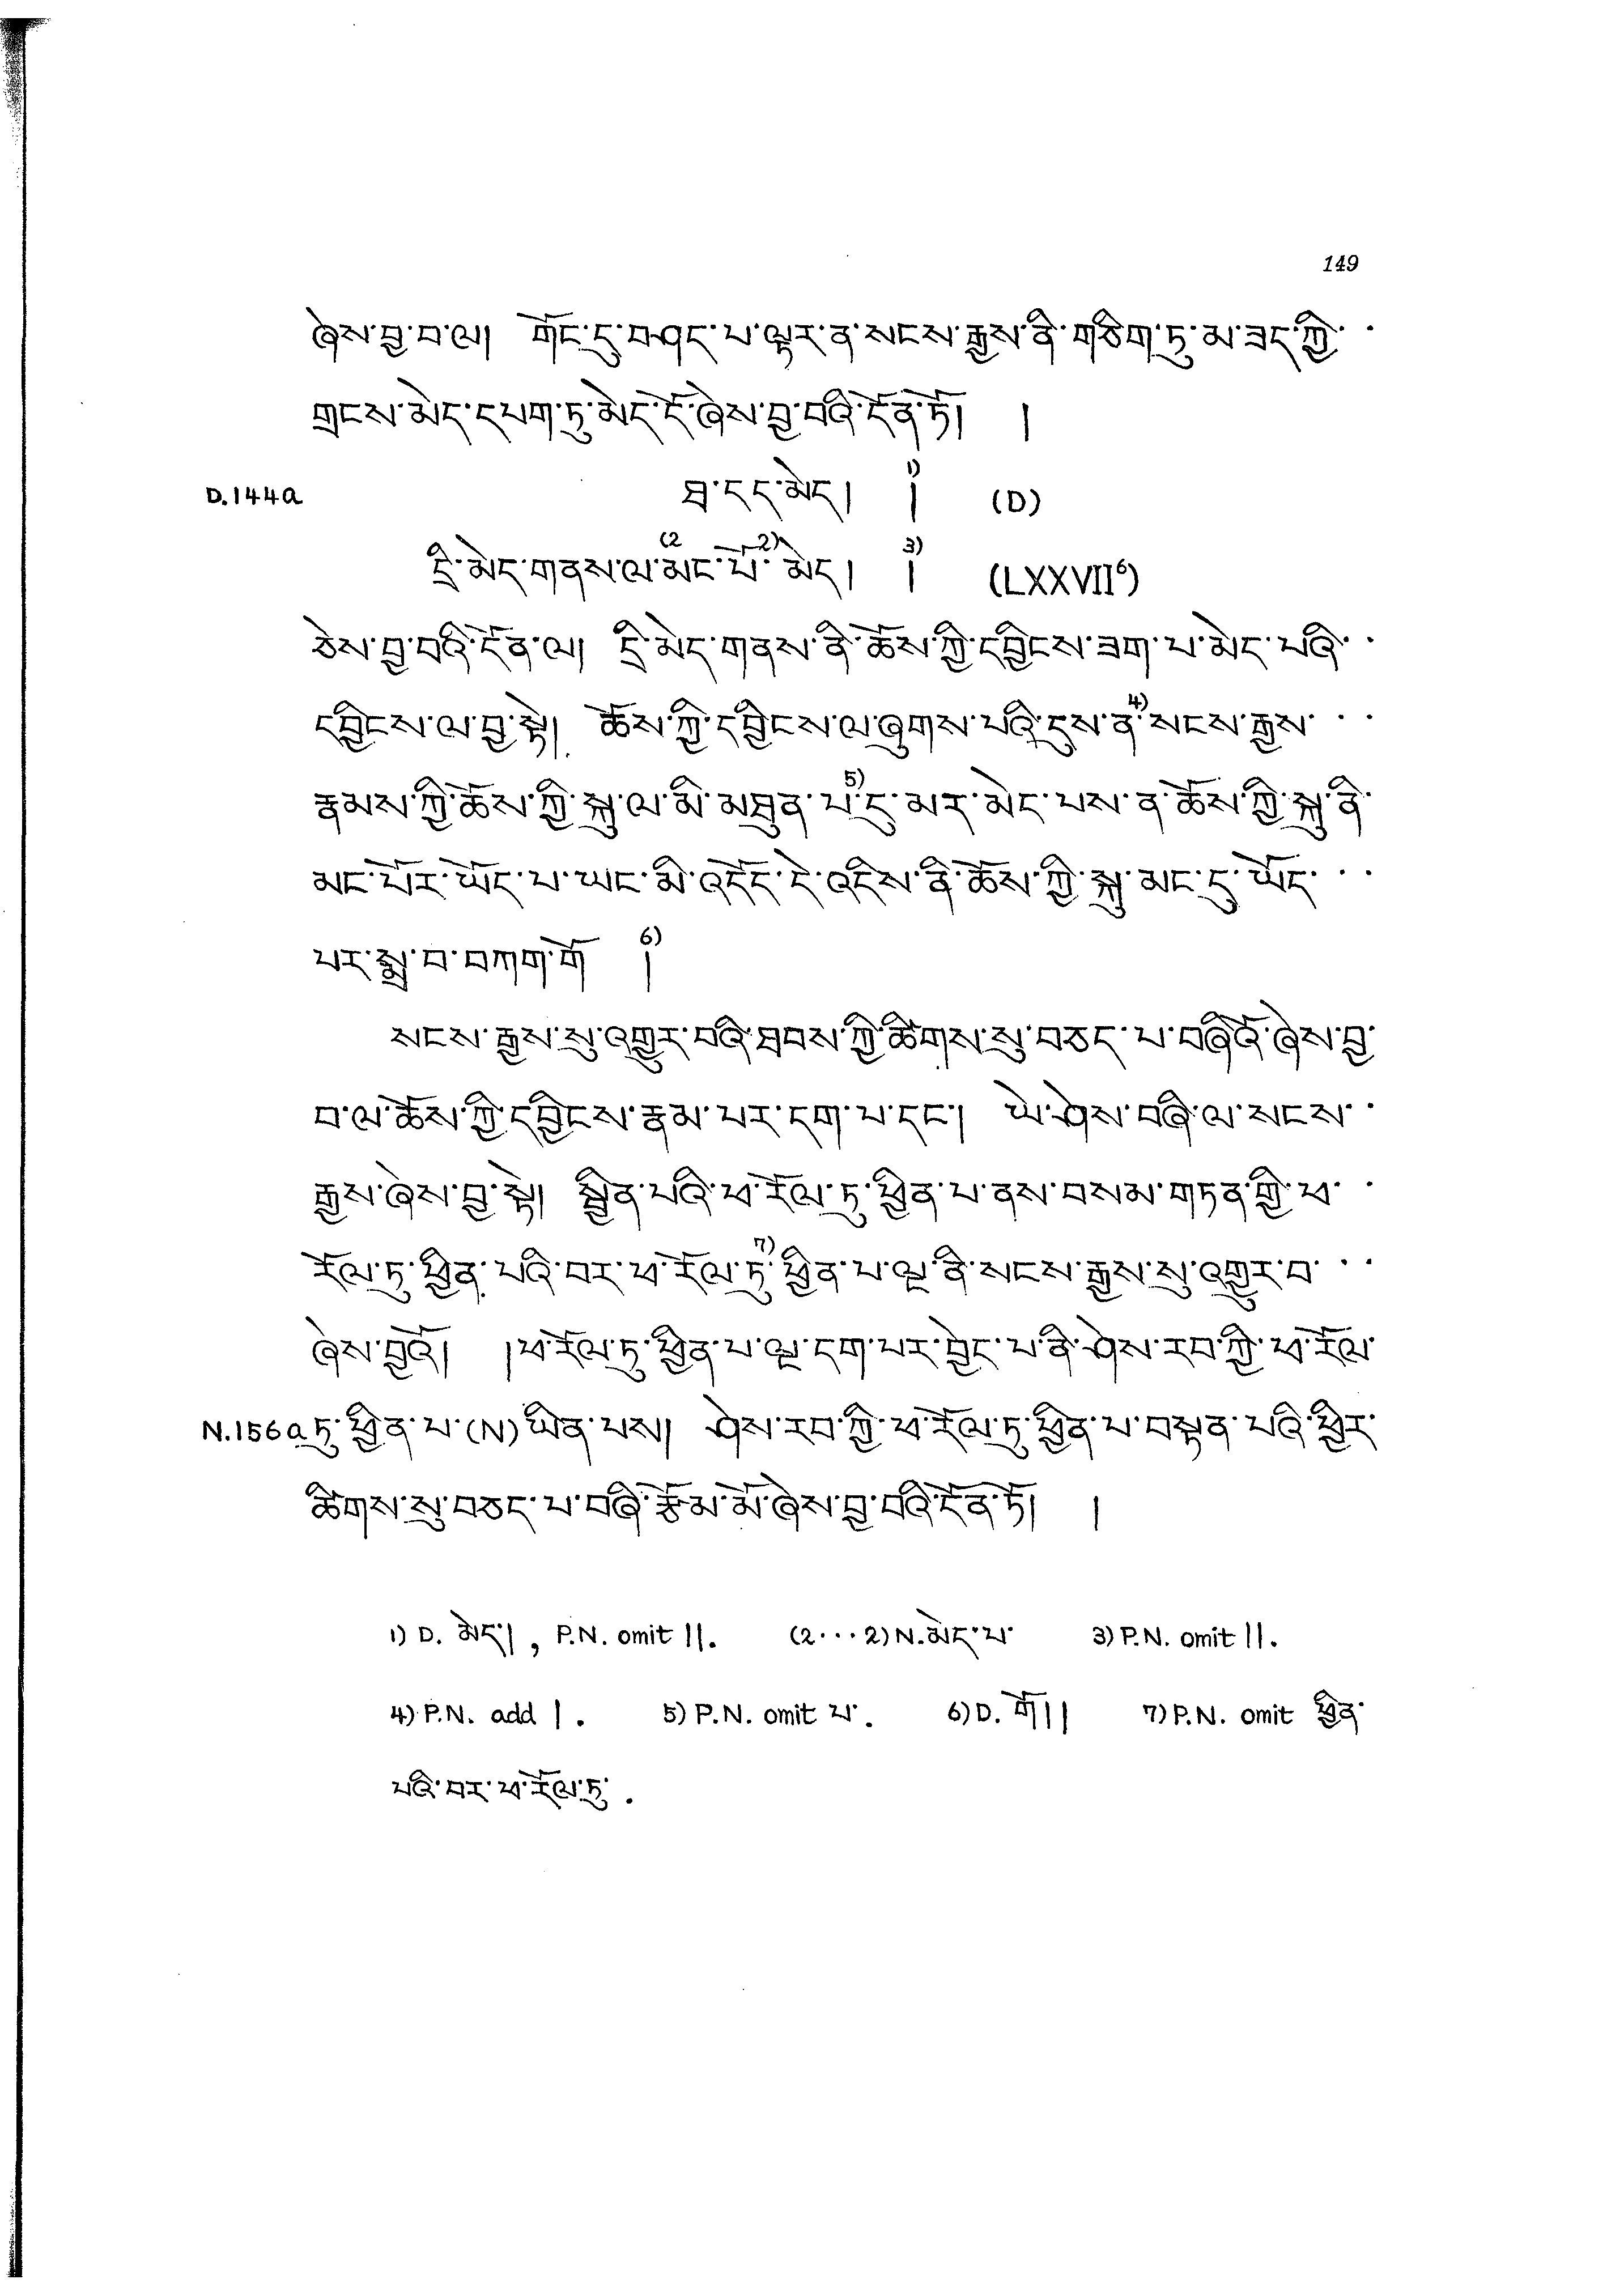 149
ཞེས་བྱ་བ་ལ། གོང་དུ་བཤད་པ་ལྟར་ན་སངས་རྒྱས་ནི་གཅིག་ཏུ་མ་ཟད་ཀྱི་ ·
གྲངས་མེད་དཔག་ཏུ་མེད་དོ་ཞེས་བྱ་བའི་དོན་ཏོ། །
D.144a ཐ་དད་མེད། །1) (D)
དྲི་མེད་གནས་ལ་(2མང་པོ་2)མེད། །3) (LXXVII6)
ཅེས་བྱ་བའི་དོན་ལ། དྲི་མེད་གནས་ནི་ཆོས་ཀྱི་དབྱིངས་ཟག་པ་མེད་པའི་ ·
དབྱིངས་ལ་བྱ་སྟེ། ཆོས་ཀྱི་དབྱིངས་ལ་ཞུགས་པའི་དུས་ན་4)སངས་རྒྱས་ · ·
རྣམས་ཀྱི་ཆོས་ཀྱི་སྐུ་ལ་མི་མཐུན་པ་5)དུ་མར་མེད་པས་ན་ཆོས་ཀྱི་སྐུ་ནི་
མང་པོར་ཡོད་པ་ཡང་མི་འདོད་དེ་འདིས་ནི་ཆོས་ཀྱི་སྐུ་མང་དུ་ཡོད་ · ·
པར་སྨྲ་བ་བཀག་གོ །6)
སངས་རྒྱས་སུ་འགྱུར་བའི་ཐབས་ཀྱི་ཚིགས་སུ་བཅད་པ་བཞིའོ་ཞེས་བྱ་
བ་ལ་ཆོས་ཀྱི་དབྱིངས་རྣམ་པར་དག་པ་དང་། ཡེ་ཤེས་བཞི་ལ་སངས་ ·
རྒྱས་ཞེས་བྱ་སྟེ། སྦྱིན་པའི་ཕ་རོལ་ཏུ་ཕྱིན་པ་ནས་བསམ་གཏན་གྱི་ཕ་ ·
རོལ་ཏུ་ཕྱིན་པའི་བར་ཕ་རོལ་ཏུ་7)ཕྱིན་པ་ལྔ་ནི་སངས་རྒྱས་སུ་འགྱུར་བ་ · ·
ཞེས་བྱའོ། །ཕ་རོལ་ཏུ་ཕྱིན་པ་ལྔ་དག་པར་བྱེད་པ་ནི་ཤེས་རབ་ཀྱི་ཕ་རོལ་
N.156a ཏུ་ཕྱིན་པ་(N)ཡིན་པས། ཤེས་རབ་ཀྱི་ཕ་རོལ་ཏུ་ཕྱིན་པ་བསྟན་པའི་ཕྱིར་
ཚིགས་སུ་བཅད་པ་བཞི་རྩོམ་མོ་ཞེས་བྱ་བའི་དོན་ཏོ། །
1) D. མེད་།, P.N. omit ||. (2···2) N.མེད་པ་ 3) P.N. omit ||.
4) P.N. add |. 5) P.N. omit པ་. 6) D. གོ།། 7) P.N. omit ཕྱིན་
པའི་བར་ཕ་རོལ་ཏུ་.